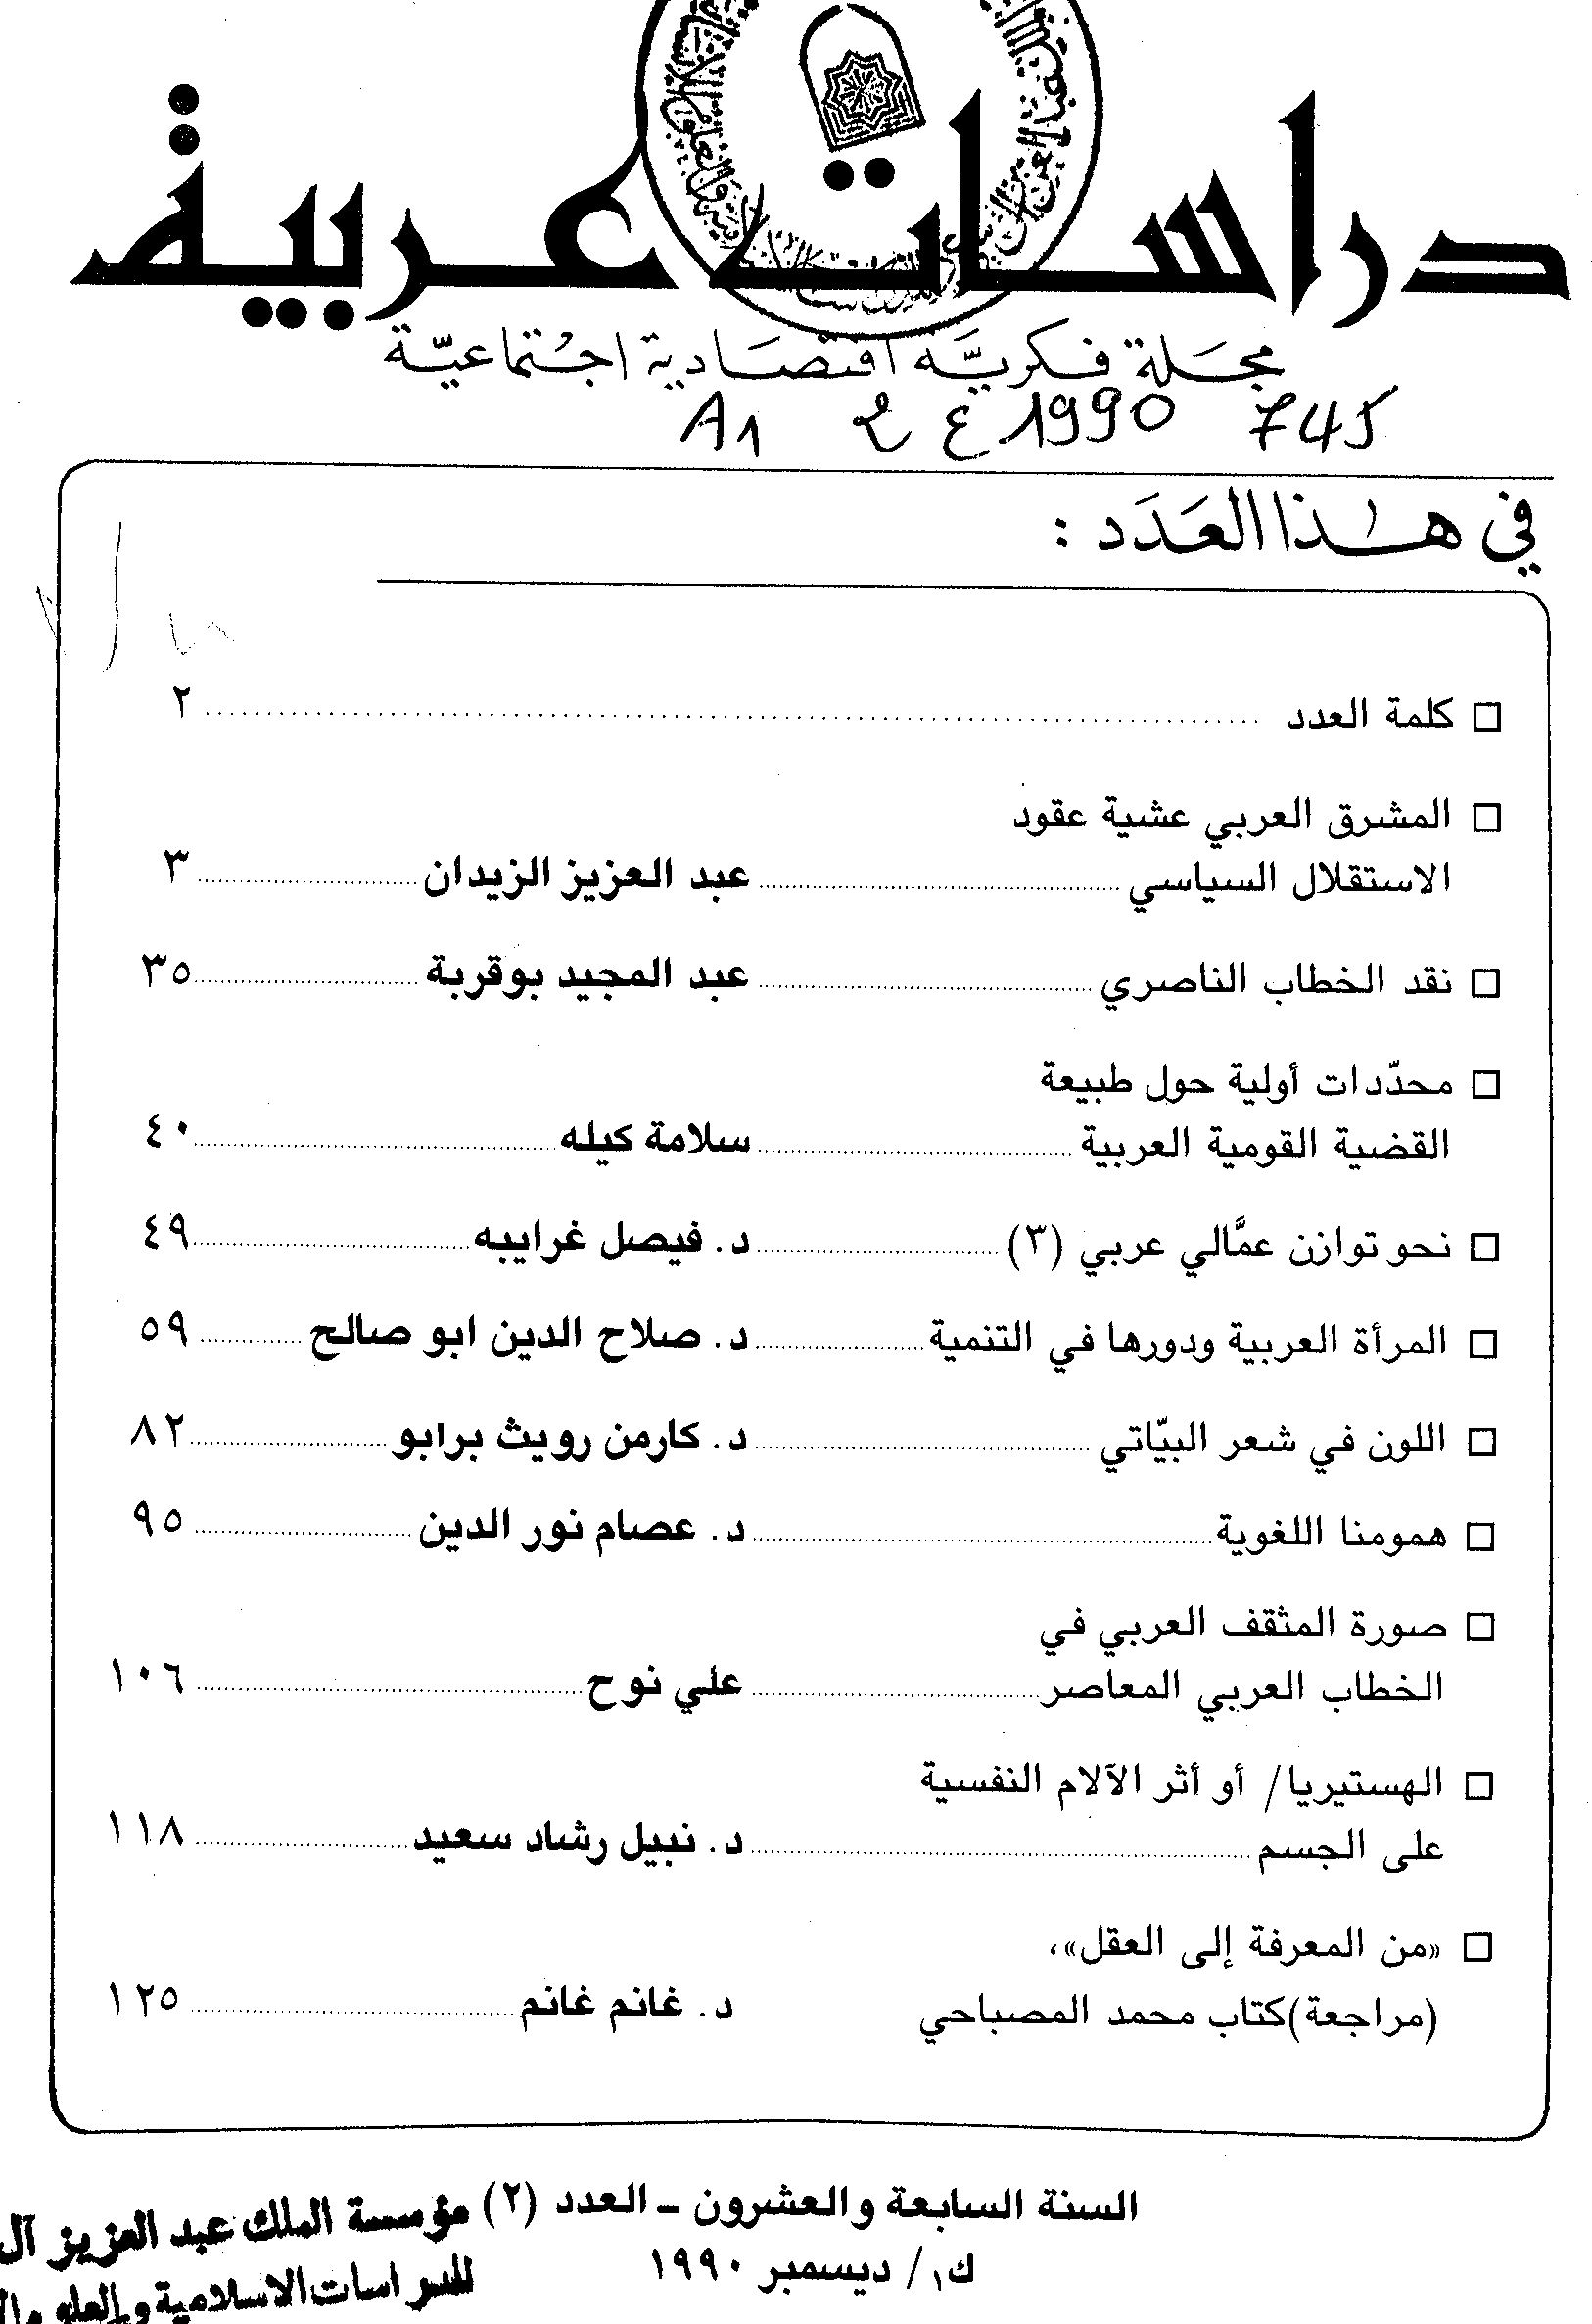 دراسات عربية
مجَلة فكريَّة اقتصَادية اجْتماعيَّة
A1 ع 2 1990 745
في هذا العَدَد :
□ كلمة العدد ........ ٢
□ المشرق العربي عشية عقود
الاستقلال السياسي ........ عبد العزيز الزيدان ........ ٣
□ نقد الخطاب الناصري ........ عبد المجيد بوقربة ........ ٣٥
□ محدّدات أولية حول طبيعة
القضية القومية العربية ........ سلامة كيله ........ ٤٠
□ نحو توازن عمَّالي عربي (٣) ........ د. فيصل غرايبه ........ ٤٩
□ المرأة العربية ودورها في التنمية ........ د. صلاح الدين ابو صالح ........ ٥٩
□ اللون في شعر البيّاتي ........ د. كارمن رويث برابو ........ ٨٢
□ همومنا اللغوية ........ د. عصام نور الدين ........ ٩٥
□ صورة المثقف العربي في
الخطاب العربي المعاصر ........ علي نوح ........ ١٠٦
□ الهستيريا/ أو أثر الآلام النفسية
على الجسم ........ د. نبيل رشاد سعيد ........ ١١٨
□ «من المعرفة إلى العقل»،
(مراجعة)كتاب محمد المصباحي د. غانم غانم ........ ١٢٥
السنة السابعة والعشرون - العدد (٢)
ك١/ ديسمبر ١٩٩٠
مؤسسة الملك عبد العزيز آل
للدراسات الاسلامية والعلوم